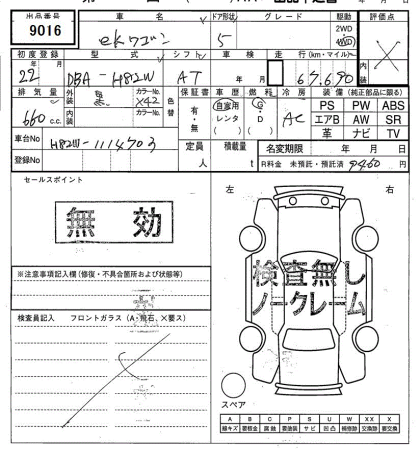 出品番号 車名 ドア形状 グレード 駆動 評価点
9016 ekワゴン 5 2WD
4WD
初度登録 型式 シフト 車検 走行(km・マイル) 内装
22年 DBA-H82W AT 年 月 67,690
排気量 外装 黒 カラーNo. X42 色替 保証書 車歴 燃料 冷房 装備(純正部品に限る)
660 c.c. 内装 カラーNo. 有・無 自家用 レンタ G・D AC PS PW ABS
エアB AW SR
革 ナビ TV
車台No H82W-1114703 定員 人 積載量 t 名変期限 年 月 日
登録No R料金 未預託・預託済 9460 円
セールスポイント 左 右
無効
※注意事項記入欄(修復・不具合箇所および状態等)
検査無し
ノークレーム
検査員記入 フロントガラス(A・飛石、×要ス)
スペア
A B C P S U W X XX
線キズ 要板金 腐蝕 要塗装 サビ 凹凸 補修跡 交換跡 要交換